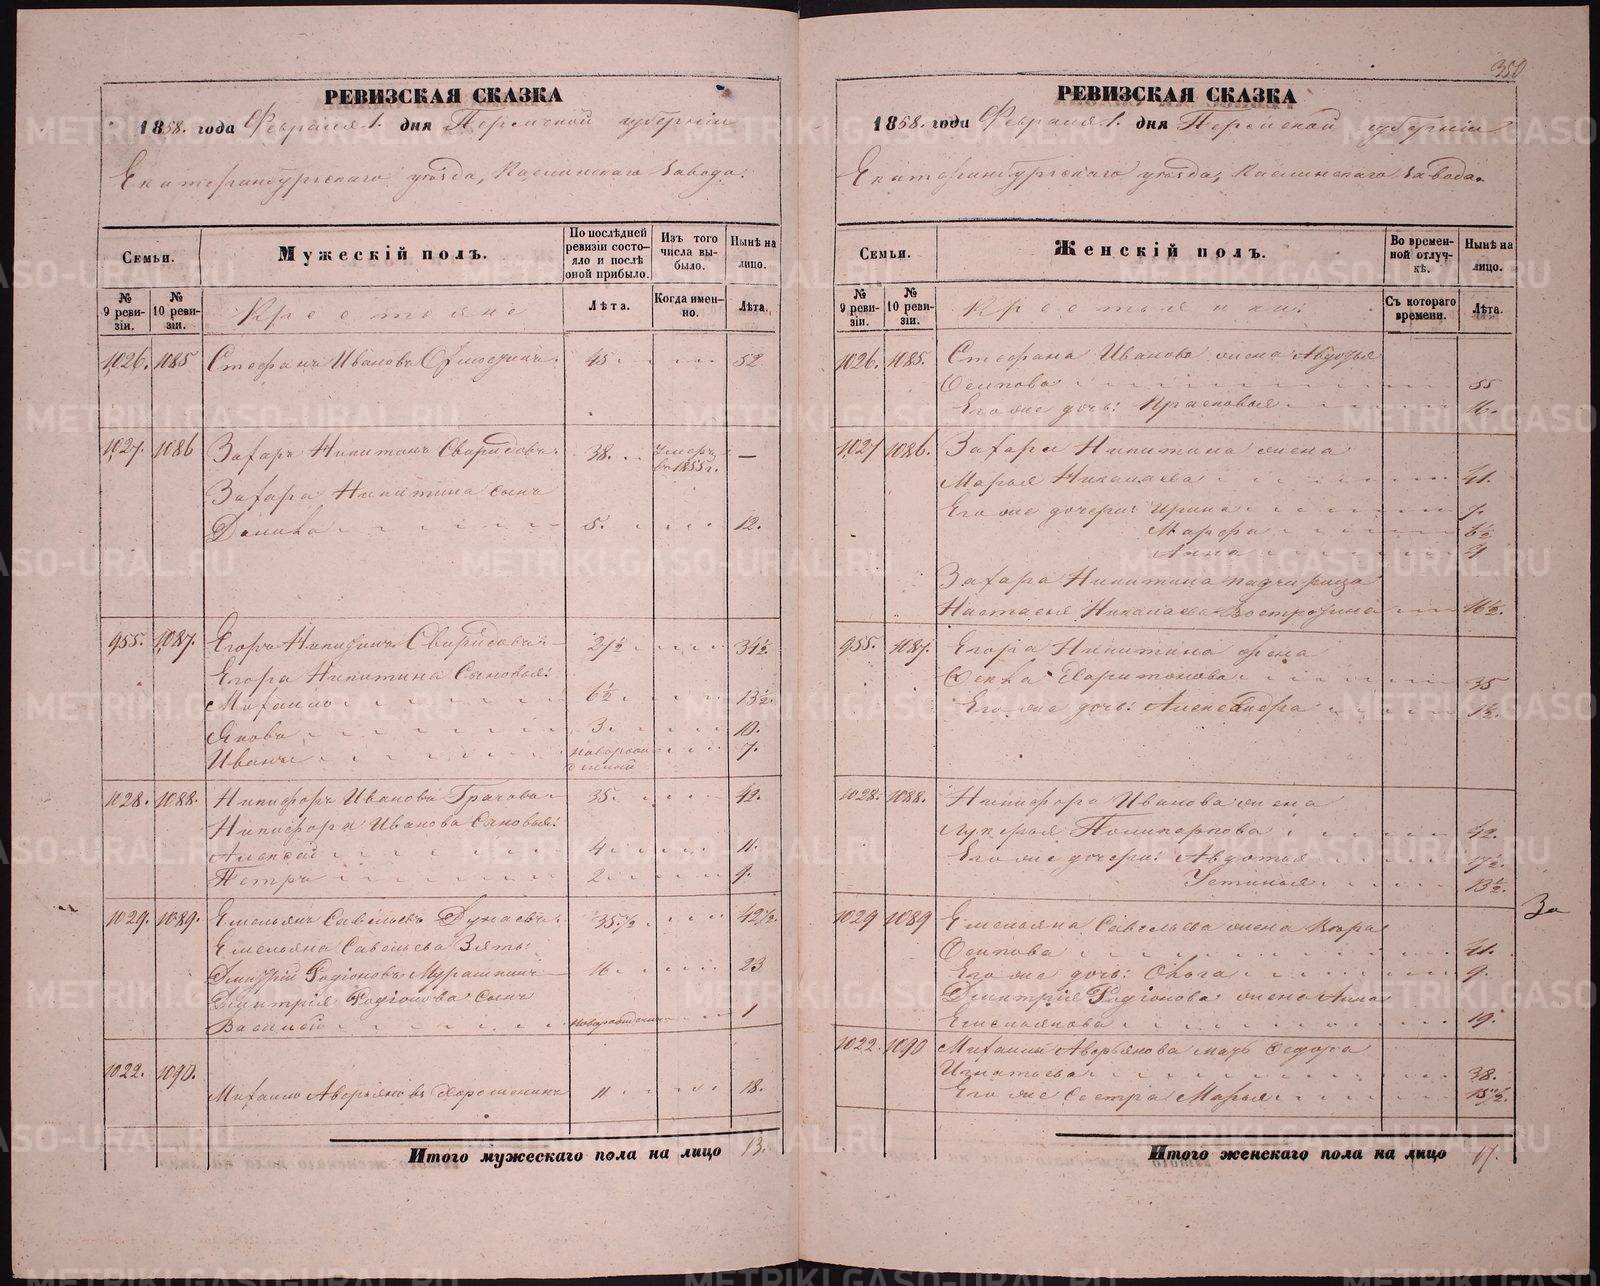 350
РЕВИЗСКАЯ СКАЗКА
1858. года Февраля 1. дня Пермской губернии
Екатеринбургскаго уѣзда, Каслинскаго Завода.
Семьи.
Мужескій полъ.
По послѣдней ревизіи состояло и послѣ оной прибыло.
Изъ того числа выбыло.
Нынѣ на лицо.
№ 9 ревизіи.
№ 10 ревизіи.
Крестьяне
Лѣта.
Когда именно.
Лѣта.
1026. 1085 Стефанъ Ивановъ 45. 52
1027. 1086 Захаръ Никитинъ Свиридовъ. 38. умеръ въ 1855 г. —
Захара Никитина сынъ
Данило 5. 12.
955. 1087. Егоръ Никитинъ Свиридовъ 27½ 34½
Егора Никитина Сыновья:
Михаило 6½ 13½.
Яковъ 3. 10.
Иванъ новорожденный 7.
1028. 1088. Никифоръ Ивановъ Грачовъ 35. 42.
Никифора Иванова Сыновья:
Алексей 4. 11.
Петръ 2. 9.
1029. 1089. Емельянъ Савельевъ Дунаевъ. 35.½ 42½
Емельяна Савельева Зять:
Дмитрій Родіоновъ Мурашкинъ 16. 23
Дмитрія Родіонова сынъ
Василей новорожденн 1
1022. 1090.
Михаило Аверьяновъ Хорошенинъ 11. 18.
Итого мужескаго пола на лицо 13.
РЕВИЗСКАЯ СКАЗКА
1858. года Февраля 1. дня Пермской губерніи
Екатеринбургскаго уѣзда, Каслинскаго Завода.
Семьи.
Женскій полъ.
Во временной отлучкѣ.
Нынѣ на лицо.
№ 9 ревизіи.
№ 10 ревизіи.
Крестьянки.
Съ котораго времени.
Лѣта.
1026. 1085. Стефана Иванова жена Авдотья
Осипова 55
Его же дочь: 16.
1027 1086. Захара Никитина жена
Марья Николаева 41.
Его же дочери: Ирина 9.
Марфа 6½
Анна 4
Захара Никитина падчерица
Настасья Николаева 16½.
955. 1087. Егора Никитина жена
Фекла Харитонова 35
Его же дочь: Александра 1½.
1028. 1088. Никифора Иванова жена
Лукерья Поликарпова 42.
Его же дочери: Авдотья 17½.
Устинья 13½.
1029 1089 Емельяна Савельева жена Вера
Осипова 41.
Его же дочь: Ольга 9.
Дмитрія Родіонова жена Анна
Емельянова 19.
За
1022. 1090 Михаилы Аверьянова мать Федора
Игнатьева 38.
Его же сестра Марья 15½.
Итого женскаго пола на лицо 17.
METRIKI.GASO-URAL.RU